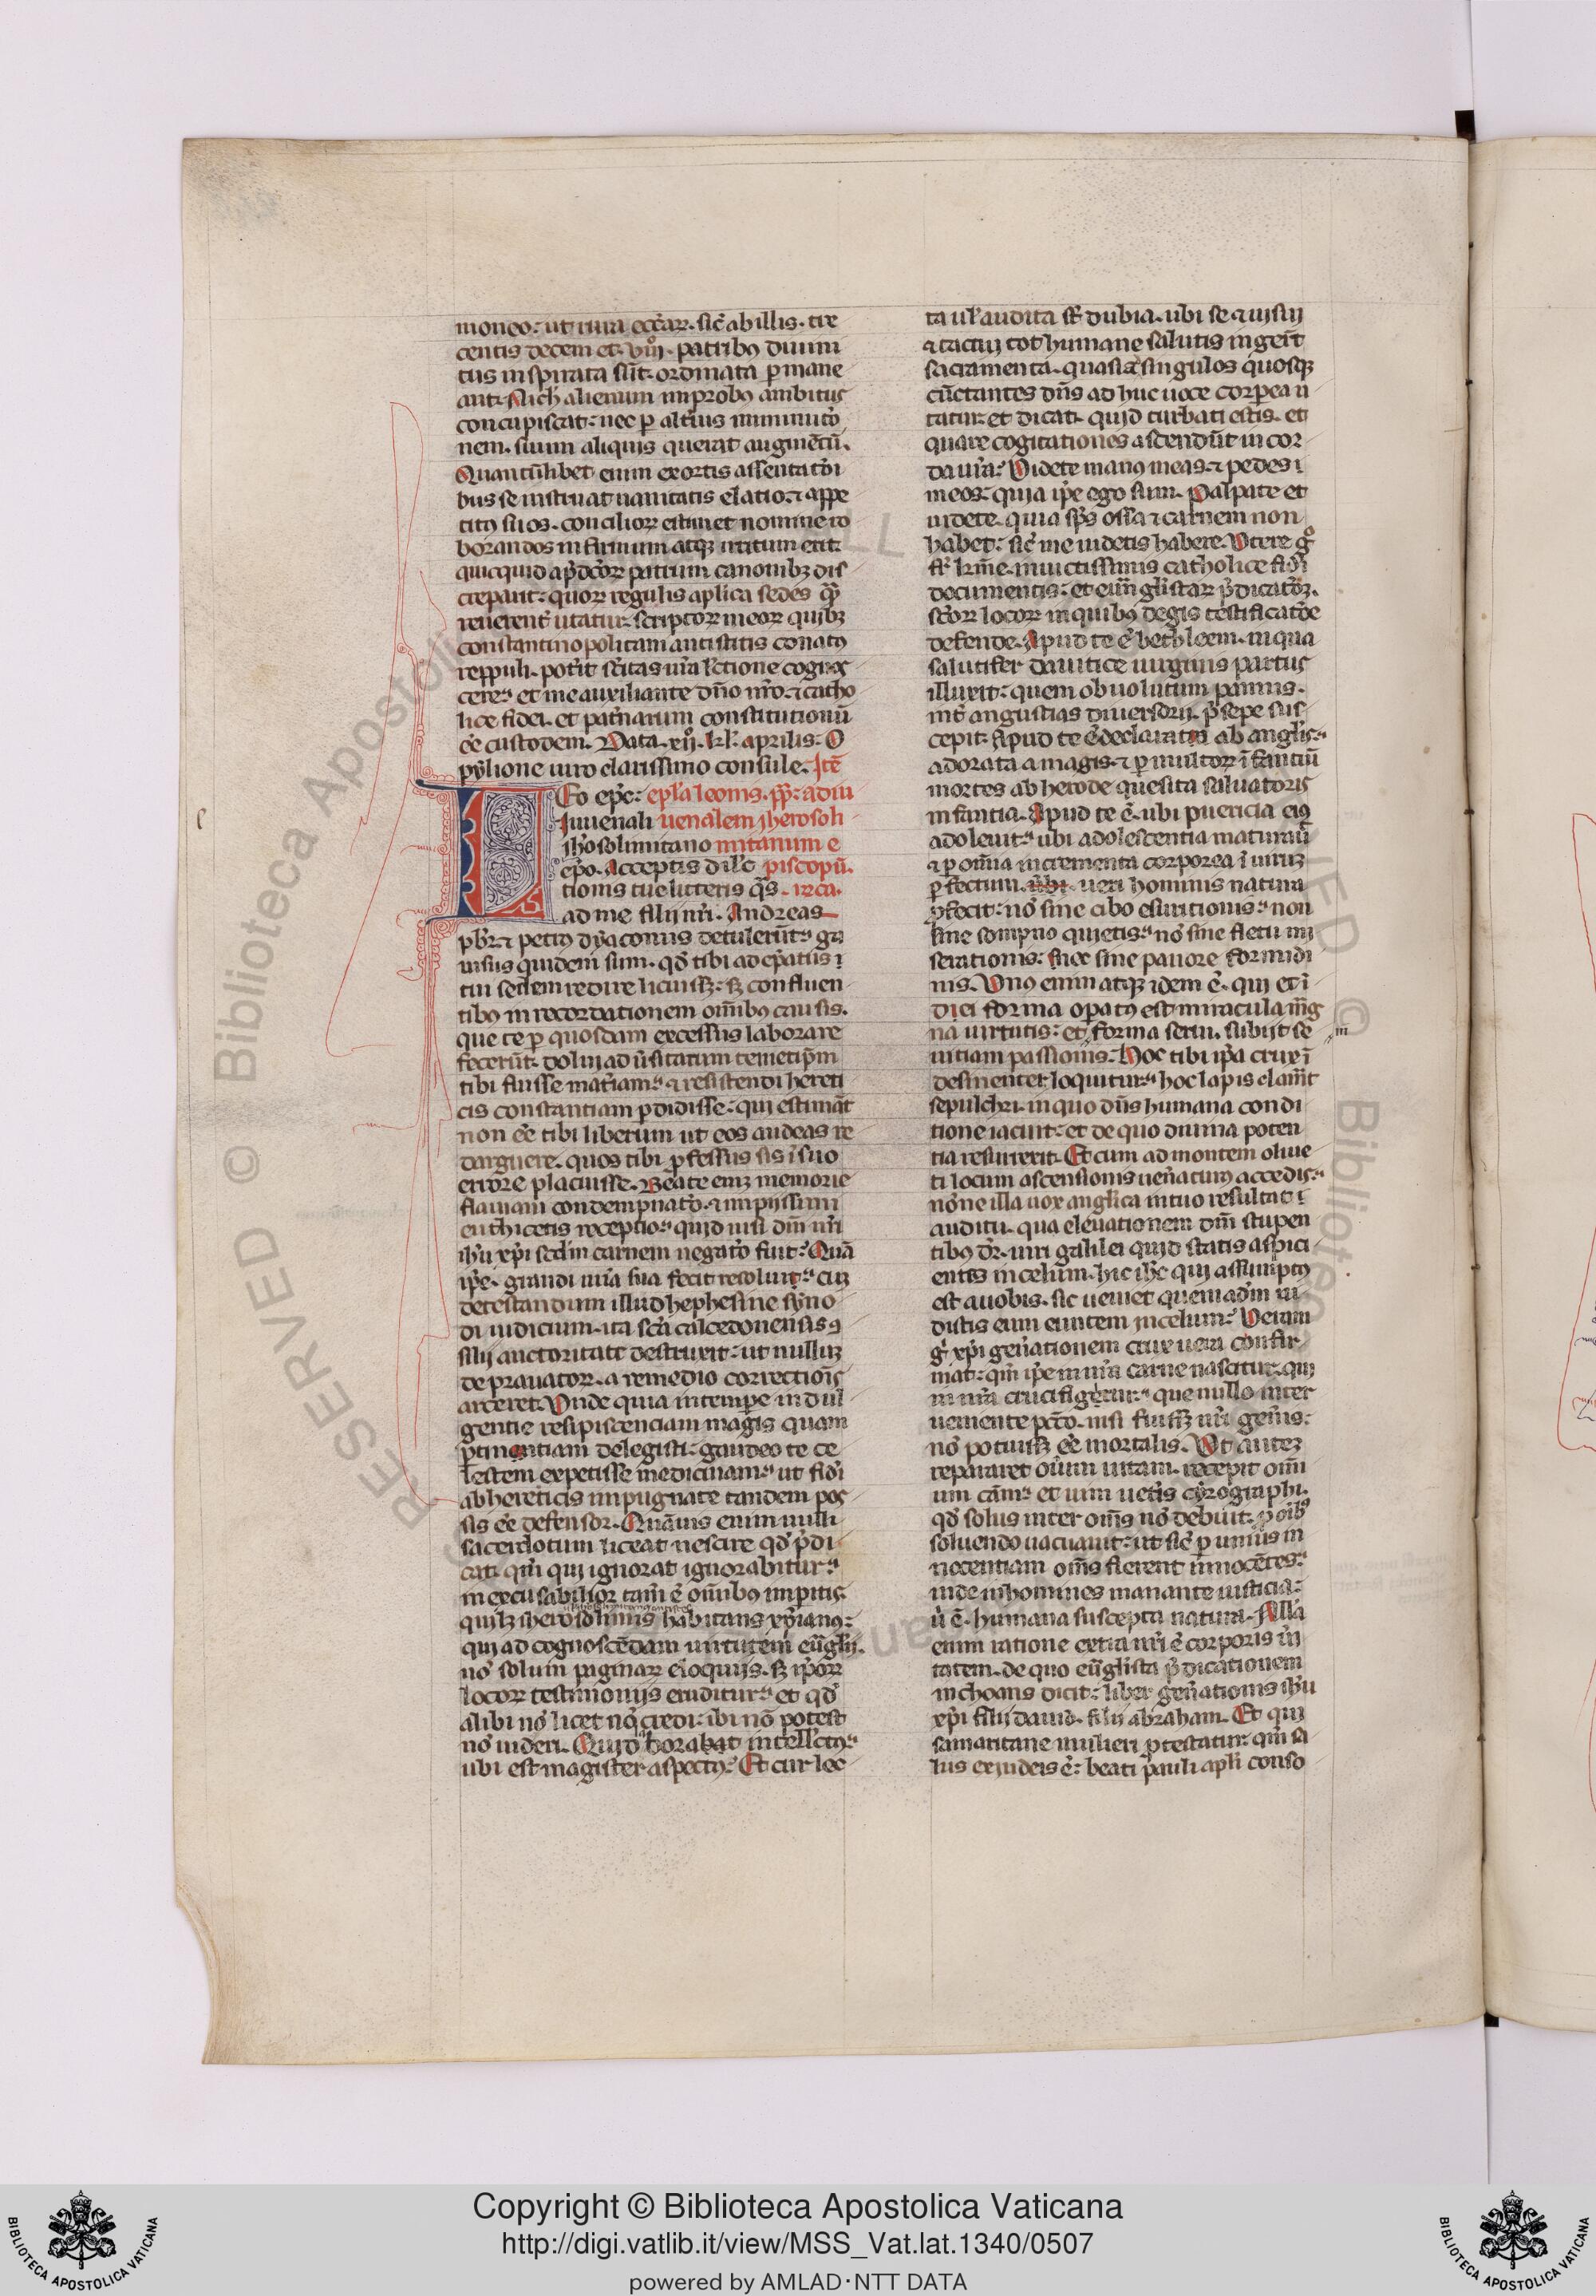 moneo. ut iura eccl̄ar. sic̄ ab illis. tre
centis decem et. viij. patribꝰ diuini
tus inspirata sūt. ordinata ꝑmane
ant. Nich̄ alienum improbꝰ ambitus
concupiscat. nec ꝑ alterius imminutō
nem. suum aliquis querat augmētū.
Quantūlibet enim exortis assentatōi
bus se instruat uanitatis elatio. ⁊ appe
titꝰ suos. conciliorꝝ estimet nomine ro
borandos infirmum atqꝫ irritum erit
quicquid a p̄dc̄orꝝ patrum canonibꝫ dis
crepauit. quorꝝ regulis aplica sedes qꝫ
reuerent̄ utatur. scriptorꝝ meorꝝ quibꝫ
constantinopolitani antistitis conatꝰ
reppuli. poterit sc̄itas ur̄a lc̄tione cognos
cere. et me auxiliante dn̄o nr̄o. ⁊ catho
lice fidei. et pat̄narum constitutionū
ēe custodem. Data. xij. kl̄. aprilis. O
pylione uiro clarissimo consule. Itē
Leo ep̄c. epl̄a leonis. pp̄. ad iu
Iuuenali uenalem iherosoli
ih̄osolimitano mitanum e
ep̄o. Acceptis dilc̄ piscopū.
tionis tue litteris q̄s. irca.
ad me filij nr̄i. Andreas
pb̄r. ⁊ petrꝰ dyaconus detulerūt. ga
uisus quidem sum. qd̄ tibi ad ep̄atus
tui sedem redire licuissꝫ. sꝫ confluen
tibꝰ in recordationem om̄ibꝰ causis.
que te ꝑ quosdam excessus laborare
fecerūt. dolui ad ūsitatum temetip̄m
tibi fuisse mat̄iam. ⁊ resistendi hereti
cis constantiam ꝑdidisse. qui estimāt
non ēe tibi liberum ut eos audeas re
darguere. quos tibi ꝓfessus sis ī suo
errore placuisse. Beate enī memorie
flauiani condempnatō. ⁊ impijssimi
euthicetis receptio. quid nisi dn̄i nr̄i
ih̄u xp̄i scd̄m carnem negatō fuit. Quā
ip̄e. grandi mīa sua fecit resolui. cū
detestandum illud hephesine syno
di iudicium. ita sc̄a calcedonensis ꝯ
silij auctoritate destruxit. ut nullum
deprauatorꝝ. a remedio correctiōis
arceret. Unde quia in tempe indul
gentie resipiscenciam magis quam
ꝑtinentiam delegisti. gaudeo te ce
lestem expetisse medicinam. ut fid̄i
ab hereticis impugnate tandem pos
sis ēe defensor. Quāuis enim nulli
sacerdotum liceat nescire qd̄ p̄di
cat. qm̄ qui ignorat ignorabitur.
inexcusabilior tam̄ ē om̄ibꝰ imperitis
quilꝫ iherosolimis habitans xp̄ianꝰ.
qui ad cognoscēdam uirtutem eūglij.
nō solum paginarꝝ eloquijs. sꝫ ip̄orꝝ
locorꝝ testimonijs eruditur. et qd̄
alibi nō licet nō credi. ibi nō potest
nō uideri. Quid laborat intellc̄tꝰ.
ubi est magister aspectꝰ. Et cur lec
ta ul̄ audita sūt dubia. ubi se ⁊ uisui
⁊ tactui tot humane salutis ingerūt
sacramenta. quasi ad singulos quosqꝫ
cūctantes dn̄s adhuc uoce corporea u
tatur. et dicat. quid turbati estis. et
quare cogitationes ascendūt in cor
da ur̄a. Videte manꝰ meas. ⁊ pedes
meos. quia ip̄e ego sum. Palpate et
uidete. quia sp̄s ossa ⁊ carnem non
habet. sic̄ me uidetis habere. Utere gͦ
fr̄ kr̄me. inuictissimis catholice fid̄i
documentis. et eūgl̄istarꝝ p̄dicatōꝫ.
sc̄orꝝ locorꝝ in quibꝰ degis testificatōe
defende. Apud te ē bethleem. in qua
salutifer dauitice uirginis partus
illuxit. quem obuolutum pannis.
int̄ angustias diuersorij. p̄sepe sus
cepit. Apud te ē declarata ab angl̄is.
adorata a magis. ⁊ ꝑ multorꝝ īfantiū
mortes ab herode quesita saluatoris
infantia. Apud te ē. ubi puericia eiꝰ
adoleuit. ubi adolescentia maturauit
⁊ ꝑ om̄ia incrementa corporea ī uirum
ꝑfectum. ubi. ueri hominis natura
ꝓfecit. nō sine cibo esuritionis. non
sine sompno quietis. nō sine fletu mi
serationis. Nec sine pauore formidi
nis. Unꝰ enim atqꝫ idem ē. qui et ī
dei forma operatꝰ est miracula mag
na uirtutis. et forma serui. subijt se
uitiam passionis. Hoc tibi ip̄a crux ī
desinenter loquitur. hoc lapis clamāt
sepulchri. in quo dn̄s humana condi
tione iacuit. et de quo diuina poten
tia resurrexit. Et cum ad montem oliue
ti locum ascensionis ueneraturꝰ accedis.
nōne illa uox angl̄ica in tuo resultat
auditu. qua eleuationem dn̄i stupen
tibꝰ dr̄. uiri galilei quid statis aspici
entes in celum. hic ih̄c qui assumptꝰ
est a uobis. sic ueniet quemadm̄ ui
distis eum euntem in celum. Veram
gͦ xp̄i gen̄ationem crux uera confir
mat. qm̄ ip̄e in nr̄a carne nascitur. qui
in nr̄a crucifigetur. que nullo inter
ueniente pcc̄o. nisi fuissꝫ nr̄i gen̄is.
nō potuissꝫ ēe mortalis. Ut autem
repararet om̄ium uitam. recepit om̄i
um cām. et uim uet̄is cyrographi.
qd̄ solus inter om̄s nō debuit. ꝓ oib̄
soluendo uacuauit. ut sic̄ ꝑ unius in
nocentiam om̄s fierent innocētes.
inde in homines manante iusticia.
ū ē. humana suscepta natura. Nulla
enim ratione extra nr̄i ē corporis ūi
tatem. de quo eūglista p̄dicationem
inchoans dicit. liber gen̄ationis ih̄u
xp̄i filij dauid. filij abraham. Et qui
samaritane mulieri ꝓtestatur. qm̄ sa
lus ex iudeis ē. beati pauli apl̄i conso
Copyright © Biblioteca Apostolica Vaticana
http://digi.vatlib.it/view/MSS_Vat.lat.1340/0507
powered by AMLAD·NTT DATA